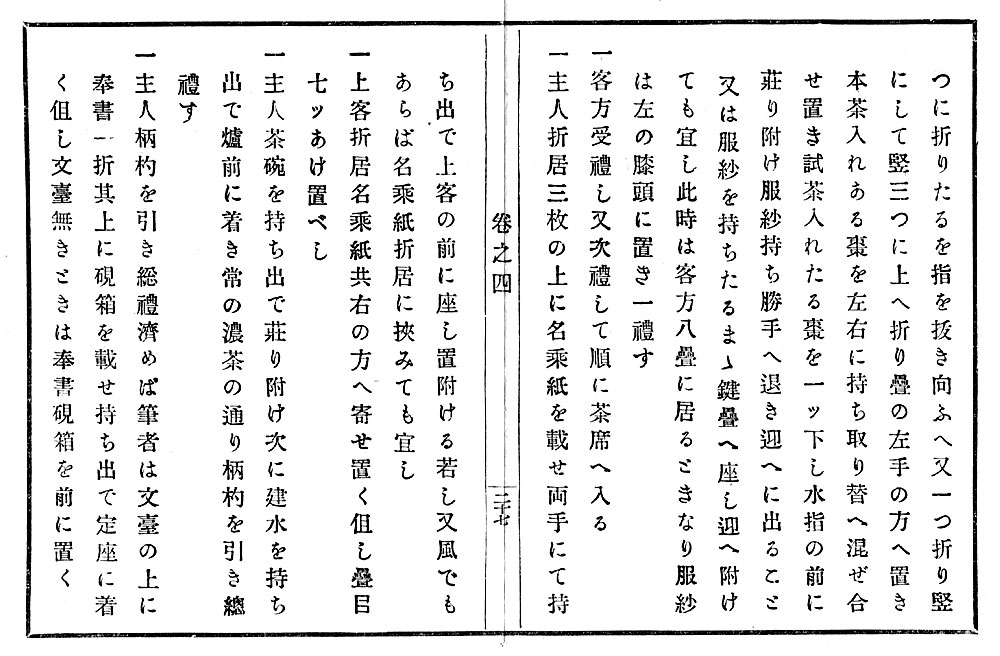 つに折りたるを指を拔き向ふへ又一つ折り竪
にして竪三つに上へ折り疊の左手の方へ置き
本茶入れある棗を左右に持ち取り替へ混ぜ合
せ置き試茶入れたる棗を一ッ下し水指の前に
莊り附け服紗持ち勝手へ退き迎へに出ること
又は服紗を持ちたるまゝ鍵疊へ座し迎へ附け
ても宜し此時は客方八疊に居るときなり服紗
は左の膝頭に置き一禮す
一客方受禮し又次禮して順に茶席へ入る
一主人折居三枚の上に名乘紙を載せ両手にて持
卷之四
二十七
ち出で上客の前に座し置附ける若し又風でも
あらば名乘紙折居に挾みても宜し
一上客折居名乘紙共右の方へ寄せ置く伹し疊目
七ッあけ置べし
一主人茶碗を持ち出で莊り附け次に建水を持ち
出で爐前に着き常の濃茶の通り柄杓を引き總
禮す
一主人柄杓を引き総禮濟めば筆者は文臺の上に
奉書一折其上に硯箱を載せ持ち出で定座に着
く伹し文臺無きときは奉書硯箱を前に置く